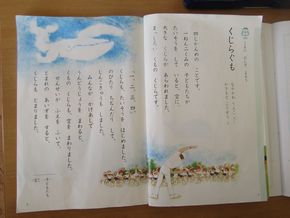 くじらぐも
四じかんめの ことです。
一ねん二くみの 子どもたちが
たいそうを して いると、空に、
大きな くじらが あらわれました。
まっしろい くもの くじらです。
「一、二、三、四。」
くじらも、たいそうを はじめました。
のびたり ちぢんだり して、
しんこきゅうも しました。
みんなが かけあしで
うんどうじょうを まわると、
くもの くじらも、空を まわりました。
せんせいが ふえを ふいて、
とまれの あいずを すると、
くじらも とまりました。